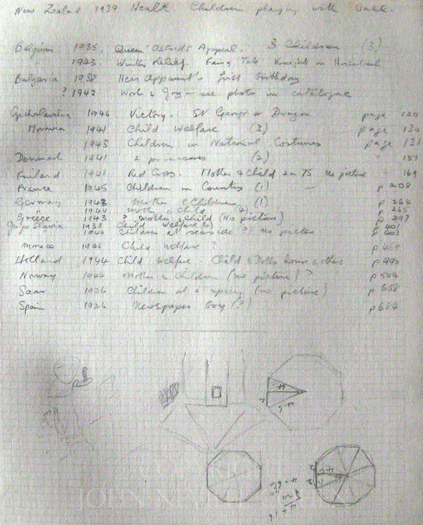 New Zealand 1939 Health. Children playing with Ball.
Belgium 1935. Queen Astrids Appeal. 3 Children (3)
1943 Winter Relief. Fairy Tale Knight on Horseback
Bulgaria 1938 Heir Apparent's first birthday
? 1942 Work & Joy – see photo in catalogue
1946 Victory. St George & Dragon page 129
Moravia 1941 Child Welfare (2) page 130
1943 Children in National Costumes page 131
Denmark 1941 2 princesses (2) 151
Finland 1941 Red Cross. Mother & Child no picture 169
France 1945 Children in Country (1) — p 208
Germany Mother & Children (1) p 264
1944 Mother & Child p 265
Greece 1943 ? Mother & Child (No picture) p 347
Jugoslavia 1938 Child Welfare p 401
1940 Children at seaside ? no picture p 401
Monaco 1946 Child Welfare ? p 469
Holland 1944 Child Welfare Child & Dolls house & others p 490
Norway 1944 Mother & Children (no picture) ? p 504
Saar 1926 Children at a (no picture) p 658
Spain 1926 Newspaper Boy (?) p 684